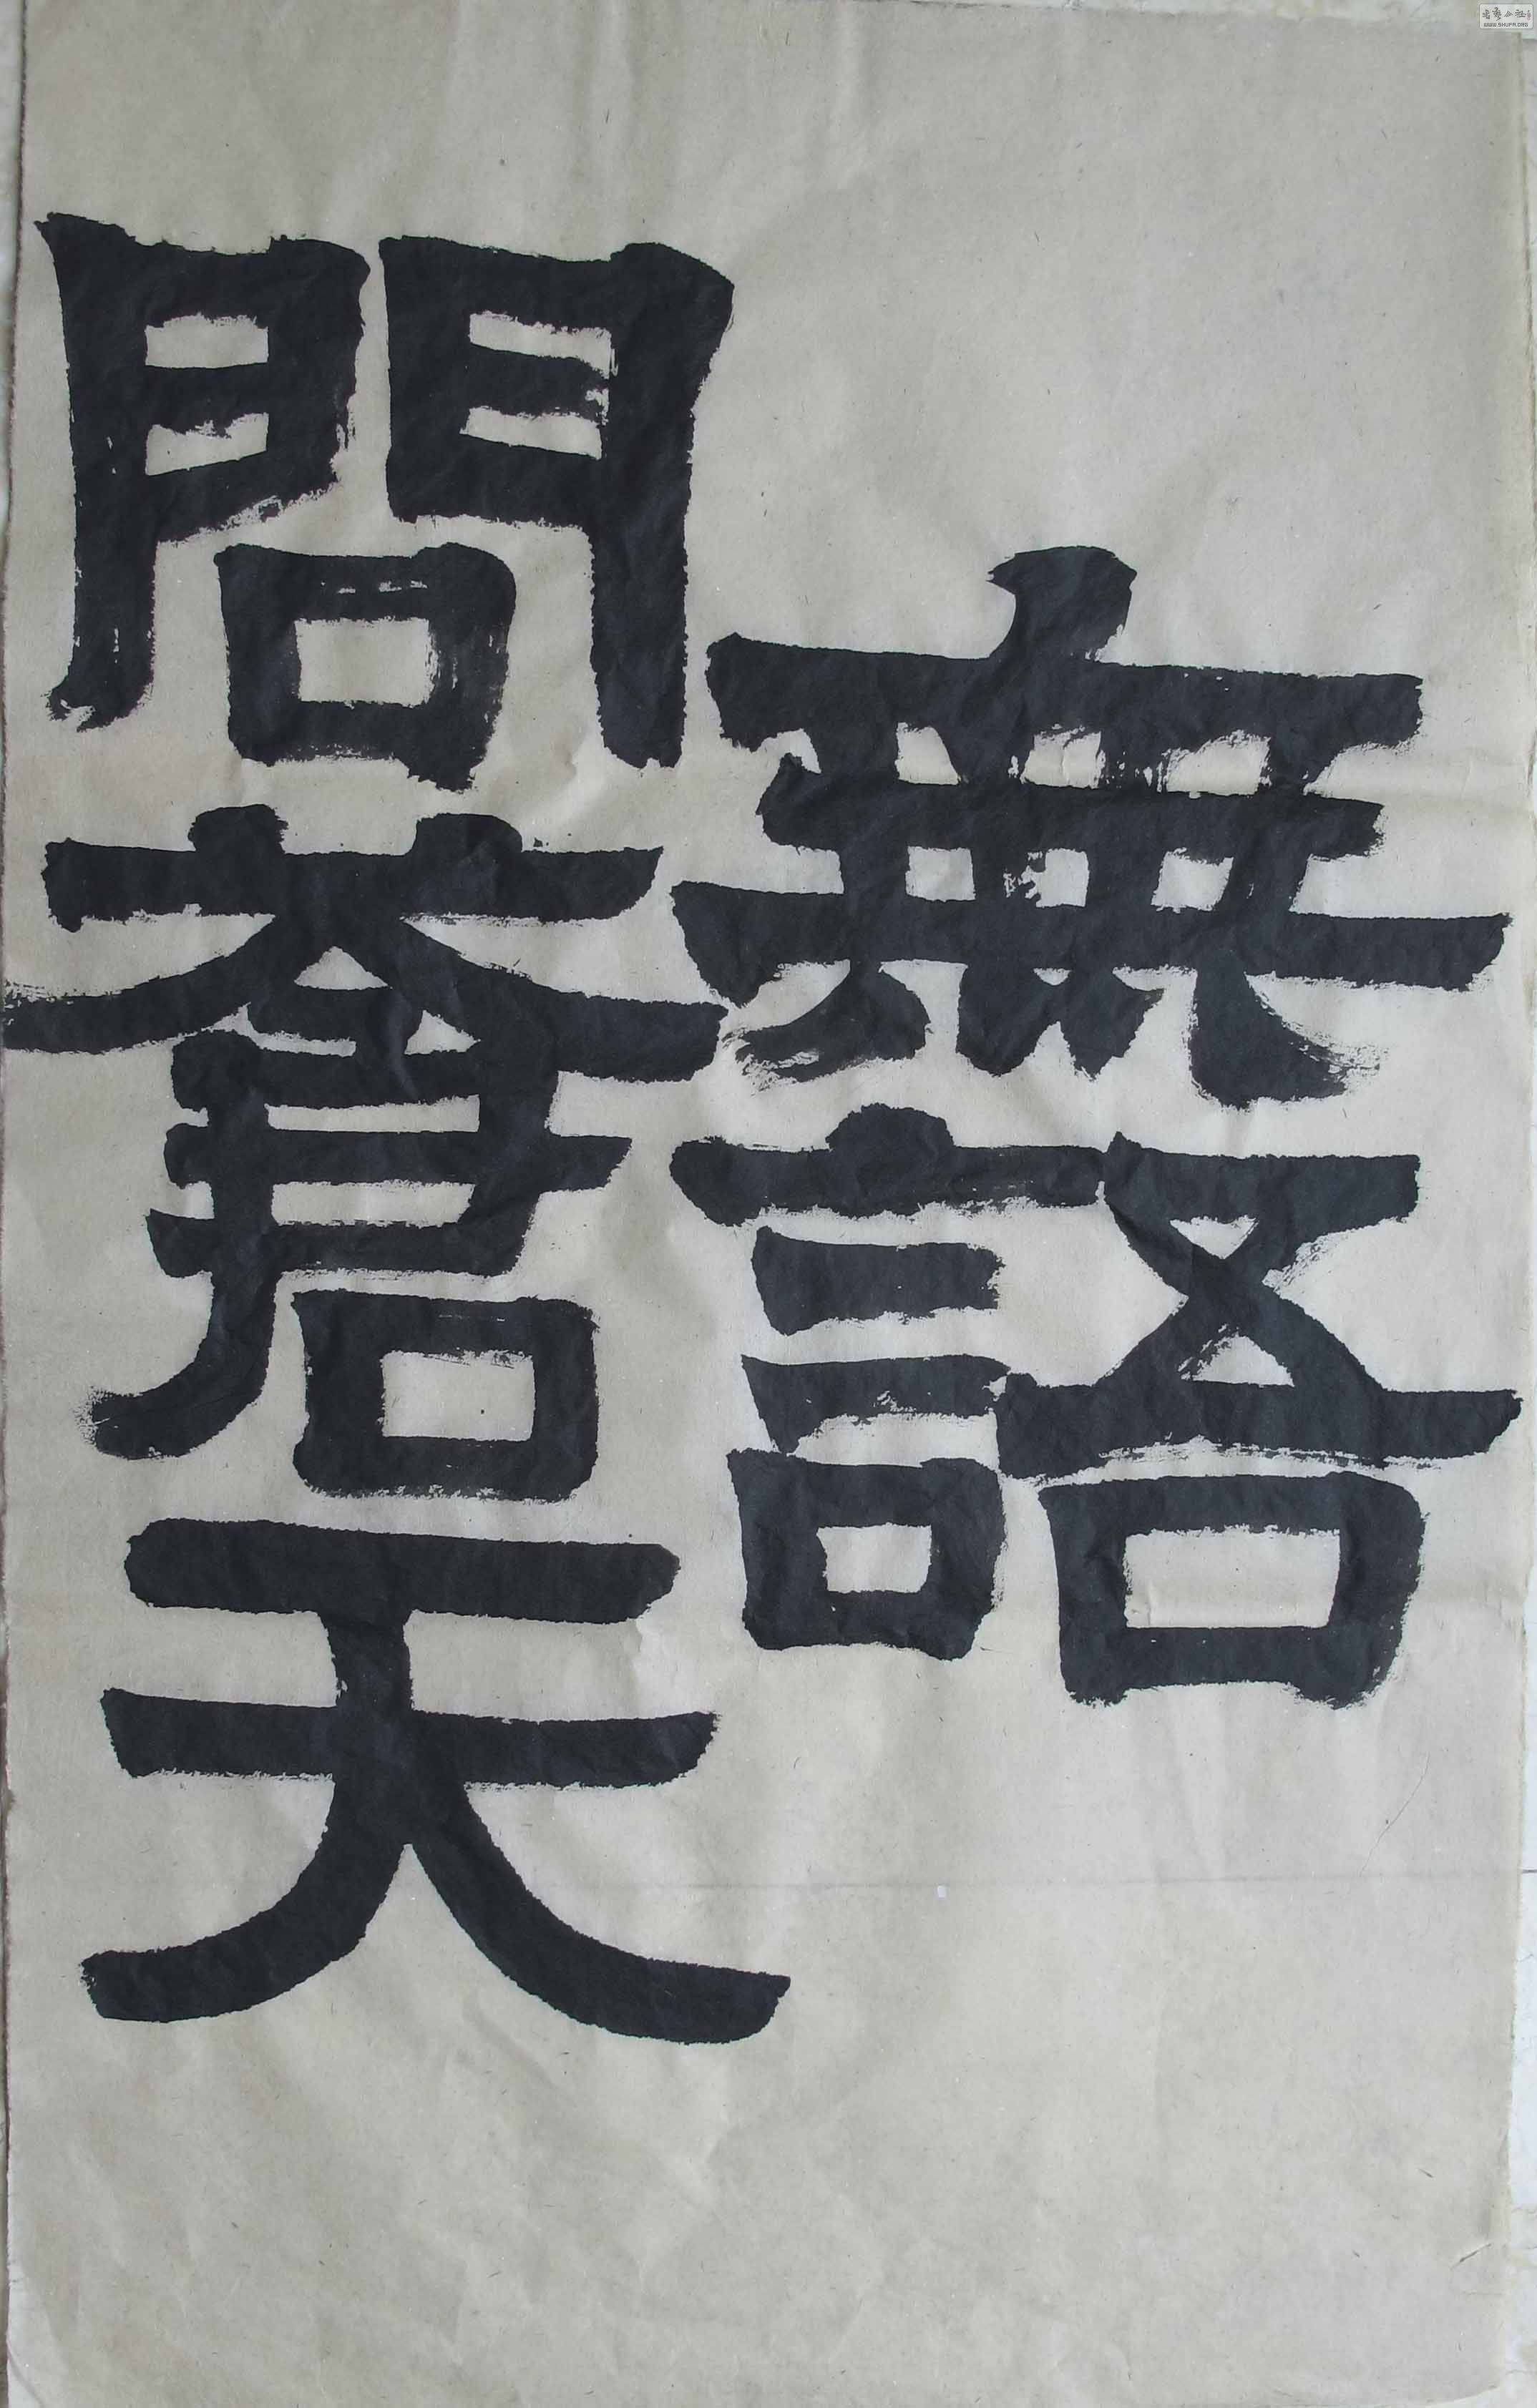 無語
問蒼天